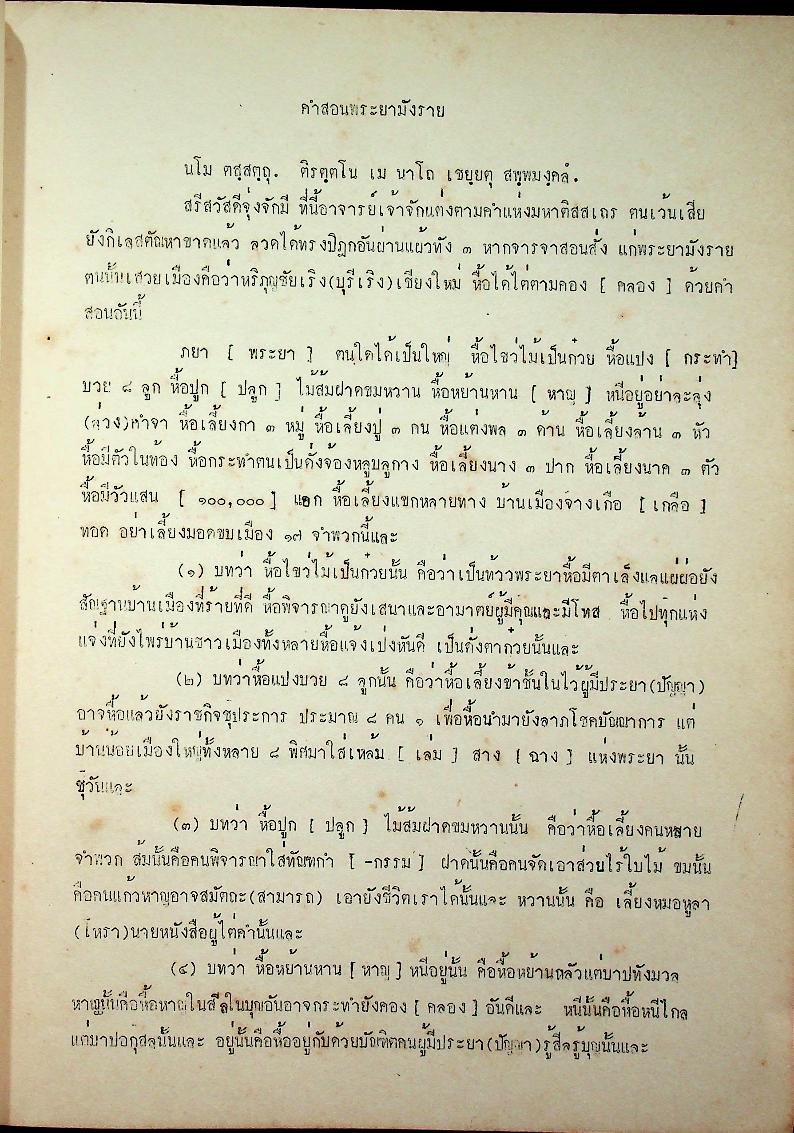 คำสอนพระยามังราย
นโม ตสฺสตฺถุ. ติรตฺตโน เม นาโถ เชยฺยตุ สพฺพมงฺคลํ.
สรีสวัสดีจุ่งจักมี ที่นี้อาจารย์เจ้าจักแต่งตามคำแห่งมหาติสสเถร ตนเว้นเสีย
ยังกิเลสตัณหาขาดแล้ว ลวดได้ทรงปิฎกอันผ่านแผ้วทัง ๓ หากจารจาสอนสั่ง แก่พระยามังราย
ตนนั้นเสวยเมืองคือว่าหริภุญชัยเริง(บุรีเริง)เชียงใหม่ หื้อได้ไต่ตามคอง [ คลอง ] ด้วยคำ
สอนอันนี้
ภยา [ พระยา ] ตนใดได้เป็นใหญ่ หื้อไขว่ไม้เป็นก๋วย หื้อแปง [ กระทำ]
บวย ๘ ลูก หื้อปูก [ ปลูก ] ไม้ส้มฝาดขมหวาน หื้อหย้านหาน [ หาญ ] หนีอยู่อย่าละลุ่ง
(ล่วง)คำจา หื้อเลี้ยงกา ๓ หมู่ หื้อเลี้ยงปู่ ๓ กน หื้อแต่งพล ๓ ด้าน หื้อเลี้ยงล้าน ๓ หัว
หื้อมีตัวในท้อง หื้อกระทำตนเป็นดั่งจ้องหลูบลูกาง หื้อเลี้ยงนาง ๓ ปาก หื้อเลี้ยงนาค ๓ ตัว
หื้อมีวัวแสน [ ๑๐๐,๐๐๐] แอก หื้อเลี้ยงแขกหลายทาง บ้านเมืองจ๋างเกือ [ เกลือ ]
ทอด อย่าเลี้ยงมอดขบเมือง ๑๗ จำพวกนี้และ
(๑) บทว่า หื้อไขว่ไม้เป็นก๋วยนั้น คือว่าเป็นท้าวพระยาหื้อมีตาเล็งแลแผ่ผ่อยัง
สัณฐานบ้านเมืองที่ร้ายที่ดี หื้อพิจารณาดูยังเสนาและอามาตย์ผู้มีคุณและมีโทส หื้อไปทุกแห่ง
แจ่งที่ยังไพร่บ้านชาวเมืองทั้งหลายหื้อแจ้งเปงหันดี เป็นดั่งตาก๋วยนั้นและ
(๒) บทว่าหื้อแปงบวย ๘ ลูกนั้น คือว่าหื้อเลี้ยงข้าชั้นในไว้ผู้มีประยา(ปัญญา)
อาจหื้อแล้วยังราชกิจชุประการ ประมาณ ๘ คน ๑ เพื่อหื้อนำมายังลาภโชคบัณณาการ แต่
บ้านน้อยเมืองใหญ่ทั้งหลาย ๘ ทิศมาใส่เหล้ม [ เล่ม ] สาง [ ฉาง ] แห่งพระยา นั้น
ชุวันและ
(๓) บทว่า หื้อปูก [ ปลูก ] ไม้ส้มฝาดขมหวานนั้น คือว่าหื้อเลี้ยงคนหลาย
จำพวก ส้มนั้นคือคนพิจารณาใส่ทัณฑกำ [ -กรรม ] ฝาดนั้นคือคนจัดเอาส่วยไร้ใบไม้ ขมนั้น
คือคนแก้วหาญอาจสมัตถะ(สามารถ) เอายังชีวิตเราได้นั้นและ หวานนั้น คือ เลี้ยงหมอหูลา
(โหรา)นายหนังสือผู้ไต่คำนั้นและ
(๔) บทว่า หื้อหย้านหาน [ หาญ ] หนีอยู่นั้น คือหื้อหย้านกลัวแต่บาปทังมวล
หาญนั้นคือหื้อหาญในสีลในบุญอันอาจกระทำยังคอง [ คลอง ] อันดีและ หนีนั้นคือหื้อหนีไกล
แต่บาปอกุสลนั้นและ อยู่นั้นคือหื้ออยู่กับด้วยบัณฑิตคนผู้มีประยา(ปัญญา)รู้สีลรู้บุญนั้นและ